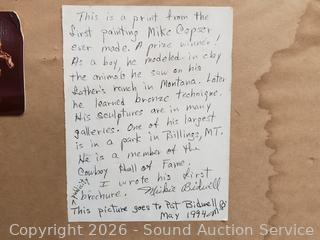 This is a print from the
first painting Mike Capser
ever made. A prize winner!
As a boy, he modeled in clay
the animals he saw on his
father's ranch in Montana. Later
he learned bronze technique.
His sculptures are in many
galleries. One of his largest
is in a park in Billings, MT.
He is a member of the
Cowboy Hall of Fame.
I wrote his first
brochure. Mikie Bidwell
This picture goes to Pat Bidwell
May 1994
Copyright 2026 - Sound Auction Service